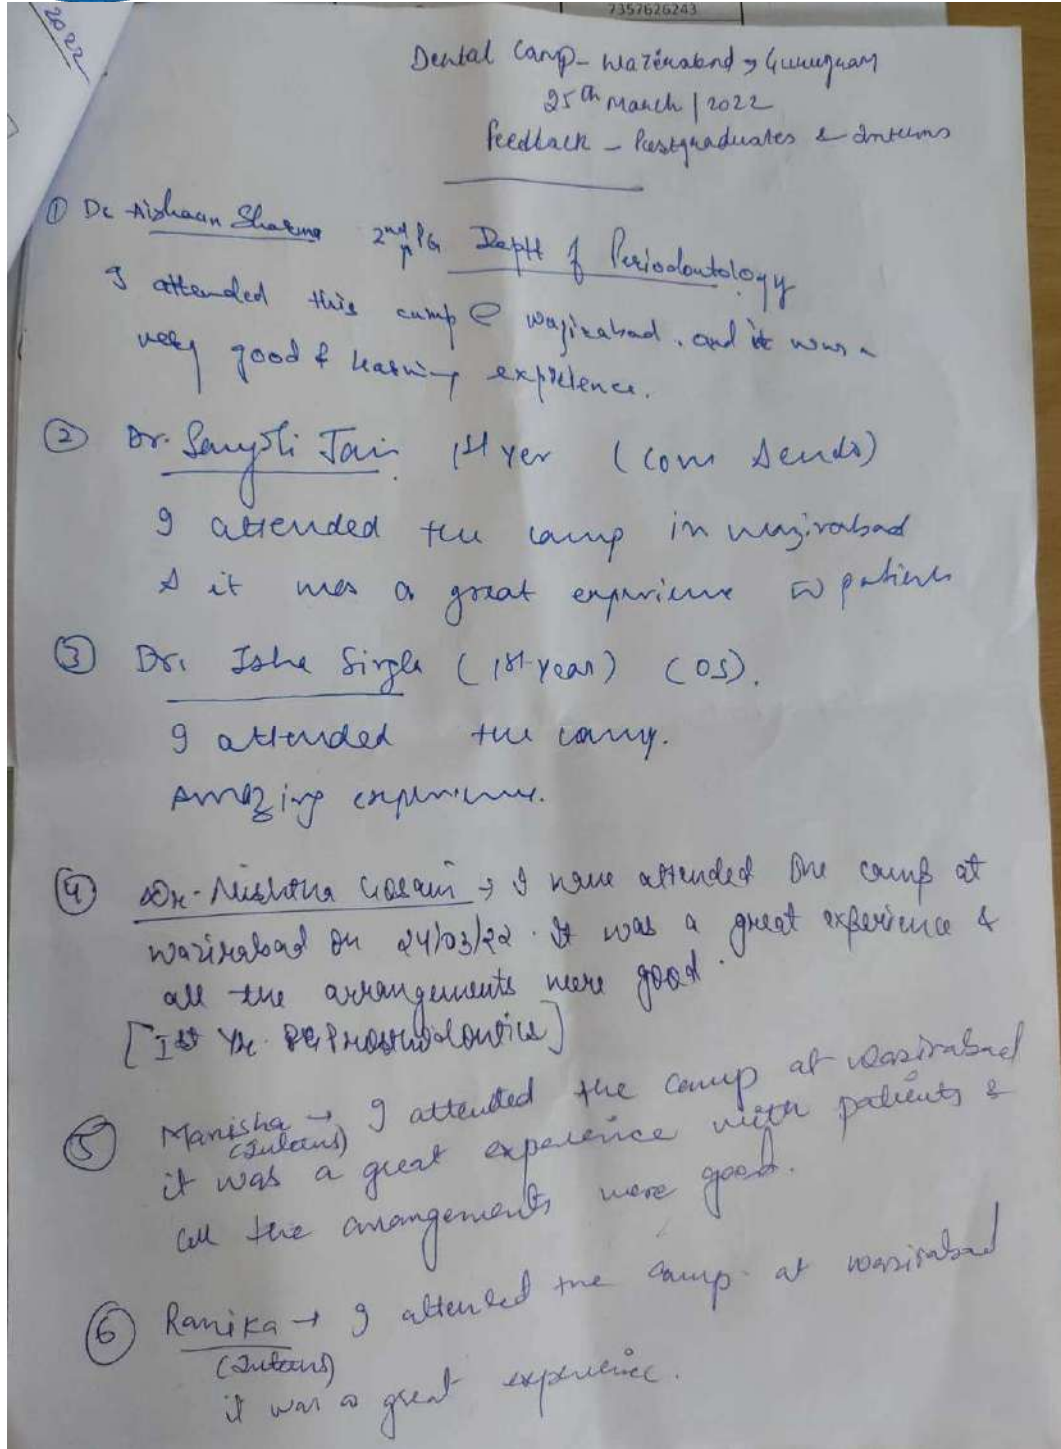 7357626243
2022
Dental Camp - Wazirabad, Gurugram
25th March | 2022
Feedback - Postgraduates & Interns
① Dr Aishaan Sharma 2nd PG Deptt of Periodontology
I attended this camp @ wazirabad. and it was a
very good & learning experience.
② Dr. Sanjoli Jain 1st yer (Cons & endo)
I attended the camp in wazirabad
& it was a great experience w patients
③ Dr. Isha Singla (1st year) (OS).
I attended the camp.
Amazing experience.
④ Dr. Nishtha Gosain → I have attended the camp at
wazirabad on 24/03/22. It was a great experience &
all the arrangements were good.
[Ist Yr. PG Prosthodontics]
⑤ Manisha → I attended the camp at wazirabad
(Intern)
it was a great experience with patients &
all the arrangements were good.
⑥ Ranika → I attended the camp at wazirabad
(Intern)
it was a great experience.